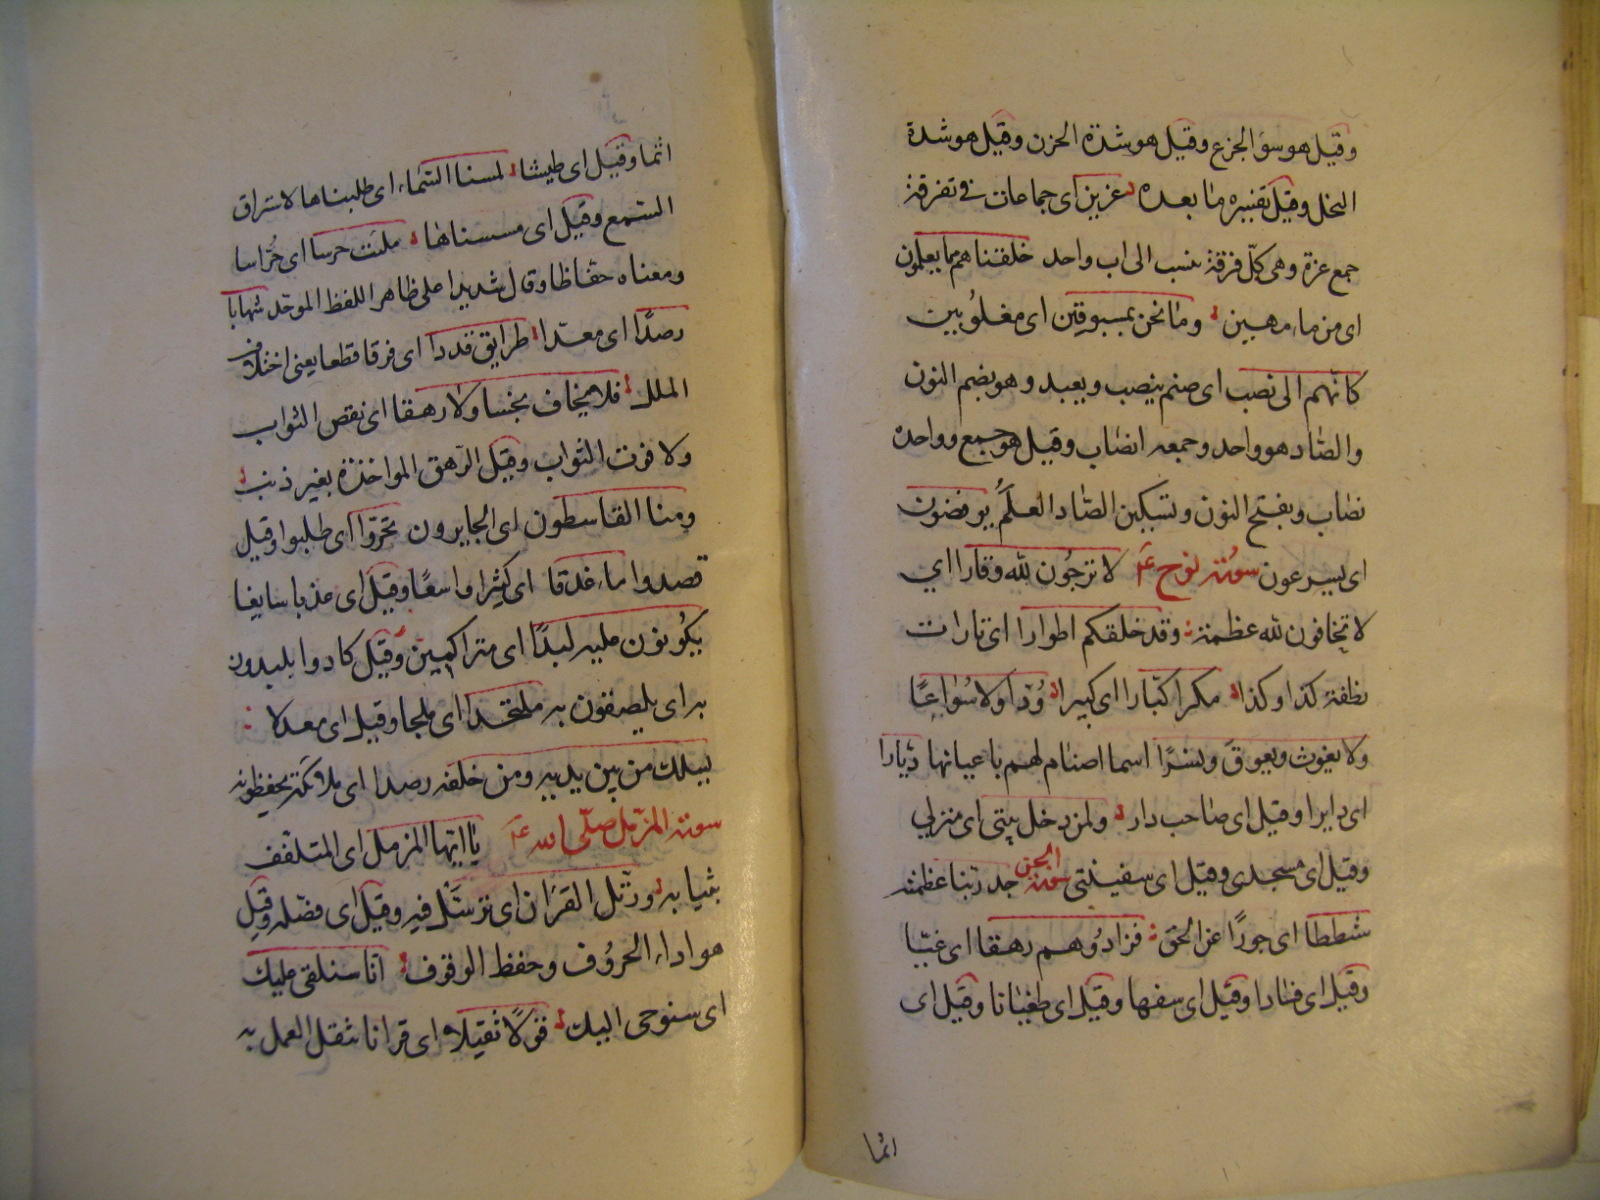 وقيل هو سؤ الجزع وقيل هو شدة الحزن وقيل هو شدة
البخل وقيل تفسيره ما بعده عزين اى جماعات فى تفرقة
جمع عزة وهى كل فرقة ينسب الى اب واحد خلقناهم مما يعلمون
اى من ماء مهين وما نحن بمسبوقين اى مغلوبين
كانهم الى نصب اى صنم ينصب ويعبد وهو بضم النون
والصاد هو واحد وجمعه انصاب وقيل هو جمع وواحده
نصاب وبفتح النون وتسكين الصاد العلم يوفضون
اى يسرعون سورة نوح عم لا ترجون لله وقارا اي
لا تخافون لله عظمته وقد خلقكم اطوارا اى تارات
نطفة كذا وكذا مكرا كبارا اى كبيرا ودا ولا سواعا
ولا يغوث ويعوق ونسرا اسما اصنام لهم باعيانها ديارا
اى دايرا وقيل اى صاحب دار ولمن دخل بيتى اى منزلي
وقيل اى مسجدى وقيل اى سفينتى سورة الجن جد ربنا عظمته
شططا اى جورا عن الحق فزادوهم رهقا اى غيا
وقيل اى فسادا وقيل اى سفها وقيل اى طغيانا وقيل اى
اثما
اثما وقيل اى طيشا لمسنا السماء اى طلبناها لاستراق
السمع وقيل اى مسسناها ملئت حرسا اى حراسا
ومعناه حفاظا وقال شديدا على ظاهر اللفظ الموحد شهابا
رصدا اى معدا طرايق قددا اى فرقا قطعا يعنى اختلاف
الملل فلا يخاف بخسا ولا رهقا اى نقص الثواب
ولا فوت الثواب وقيل الرهق المواخذة بغير ذنب
ومنا القاسطون اى الجايرون تحروا اى طلبوا وقيل
قصدوا ماء غدقا اى كثيرا واسعا وقيل اى عذبا سايغا
يكونون عليه لبدا اى متراكمين وقيل كادوا يلبدون
به اى يلصقون به ملتحدا اى ملجا وقيل اى معدلا
يسلك من بين يديه ومن خلفه رصدا اى ملائكة يحفظونه
سورة المزمل صلى الله عم يا ايها المزمل اى المتلفف
بثيابه ورتل القران اى ترسل فيه وقيل اى فصله وقيل
هو اداء الحروف وحفظ الوقوف انا سنلقى عليك
اى سنوحى اليك قولا ثقيلا اى قرانا يثقل العمل به